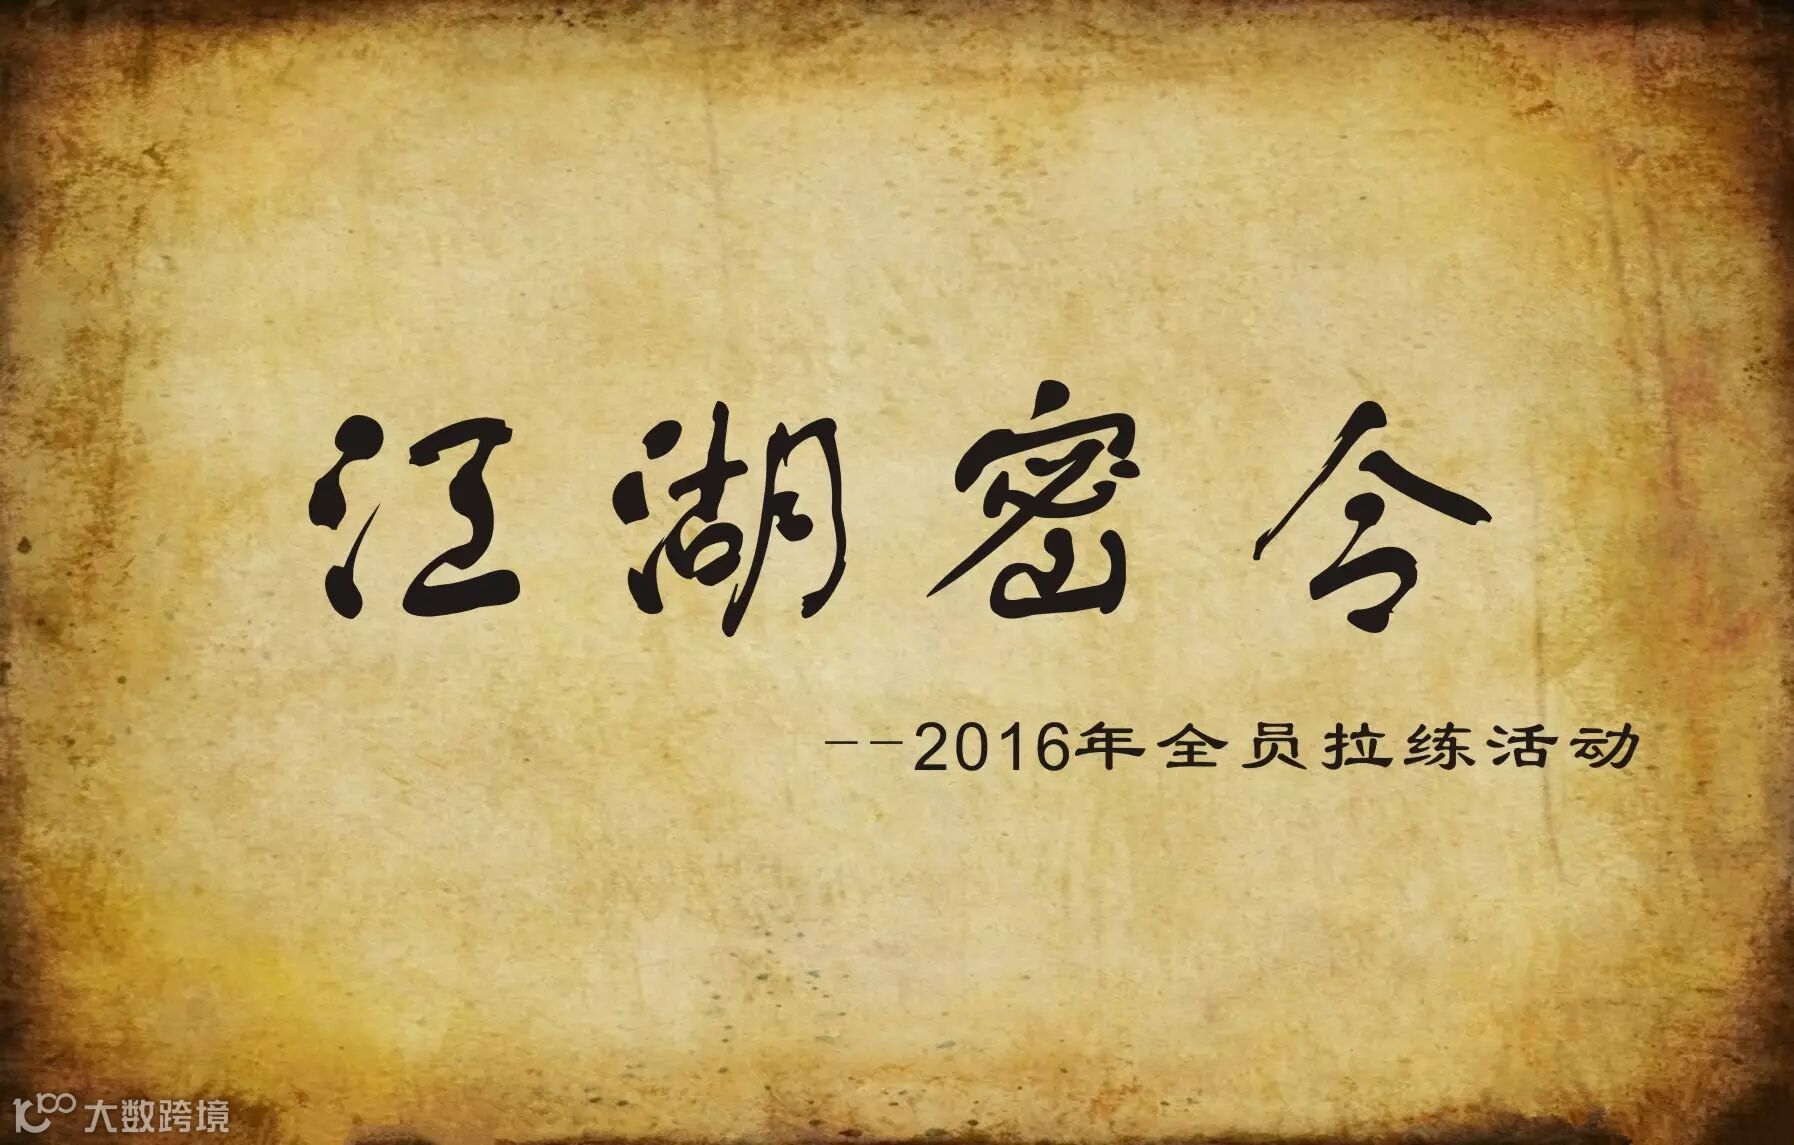 江湖密令
--2016年全员拉练活动
大数跨境